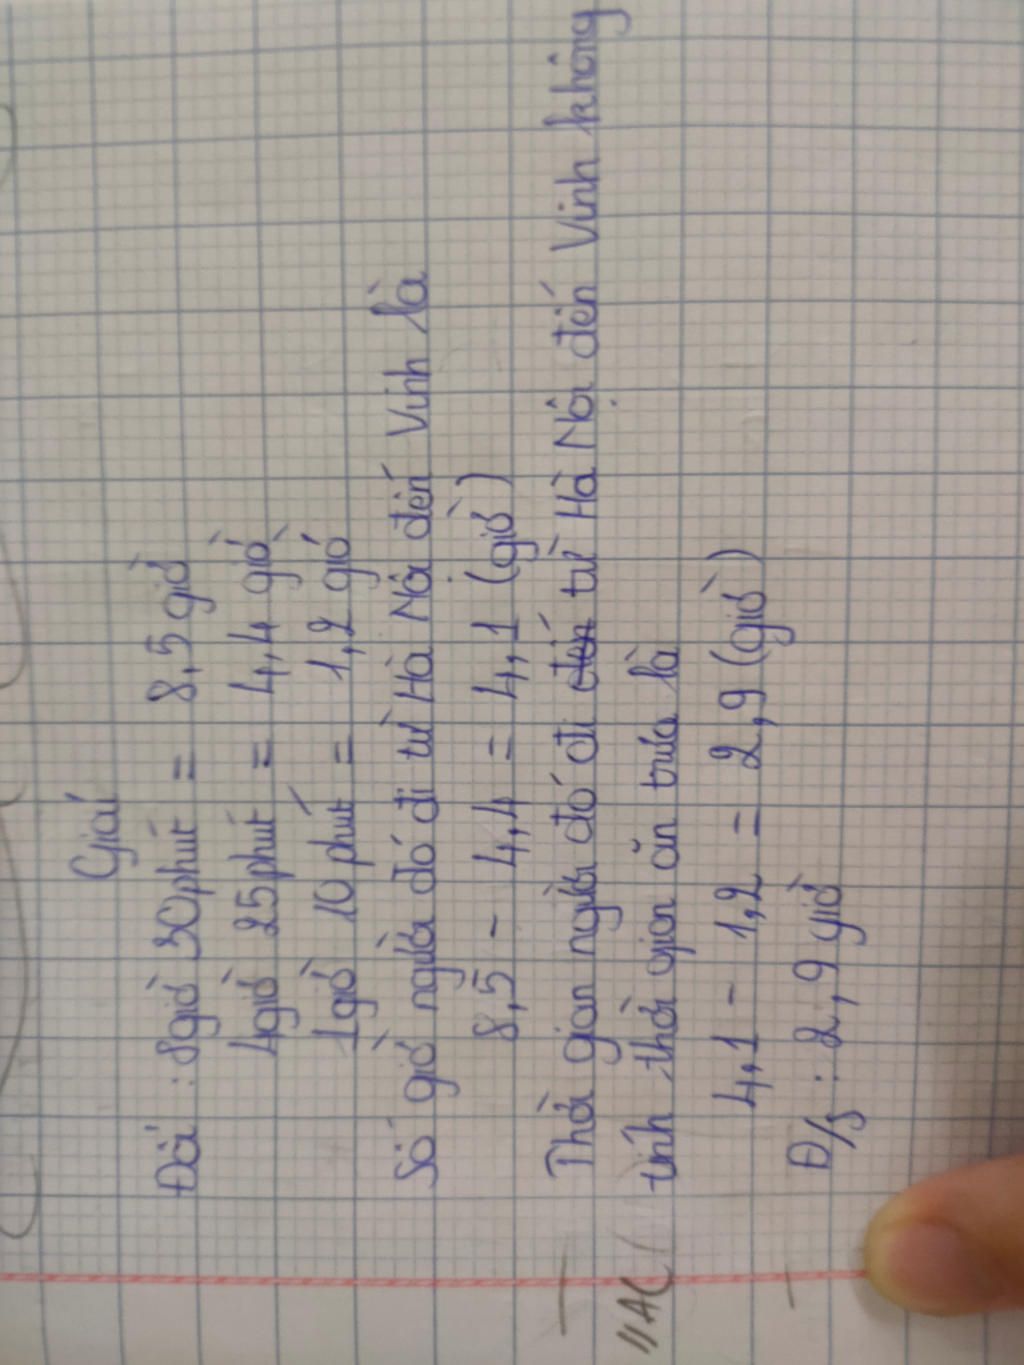 Giải
Đổi : 8giờ 30phút = 8,5 giờ
4giờ 25phút = 4,4 giờ
1giờ 10 phút = 1,2 giờ
Số giờ người đó đi từ Hà Nội đến Vinh là
8,5 - 4,4 = 4,1 (giờ)
Thời gian người đó đi đến từ Hà Nội đến Vinh không
tính thời gian ăn trưa là
4,1 - 1,2 = 2,9 (giờ)
Đ/s : 2,9 giờ